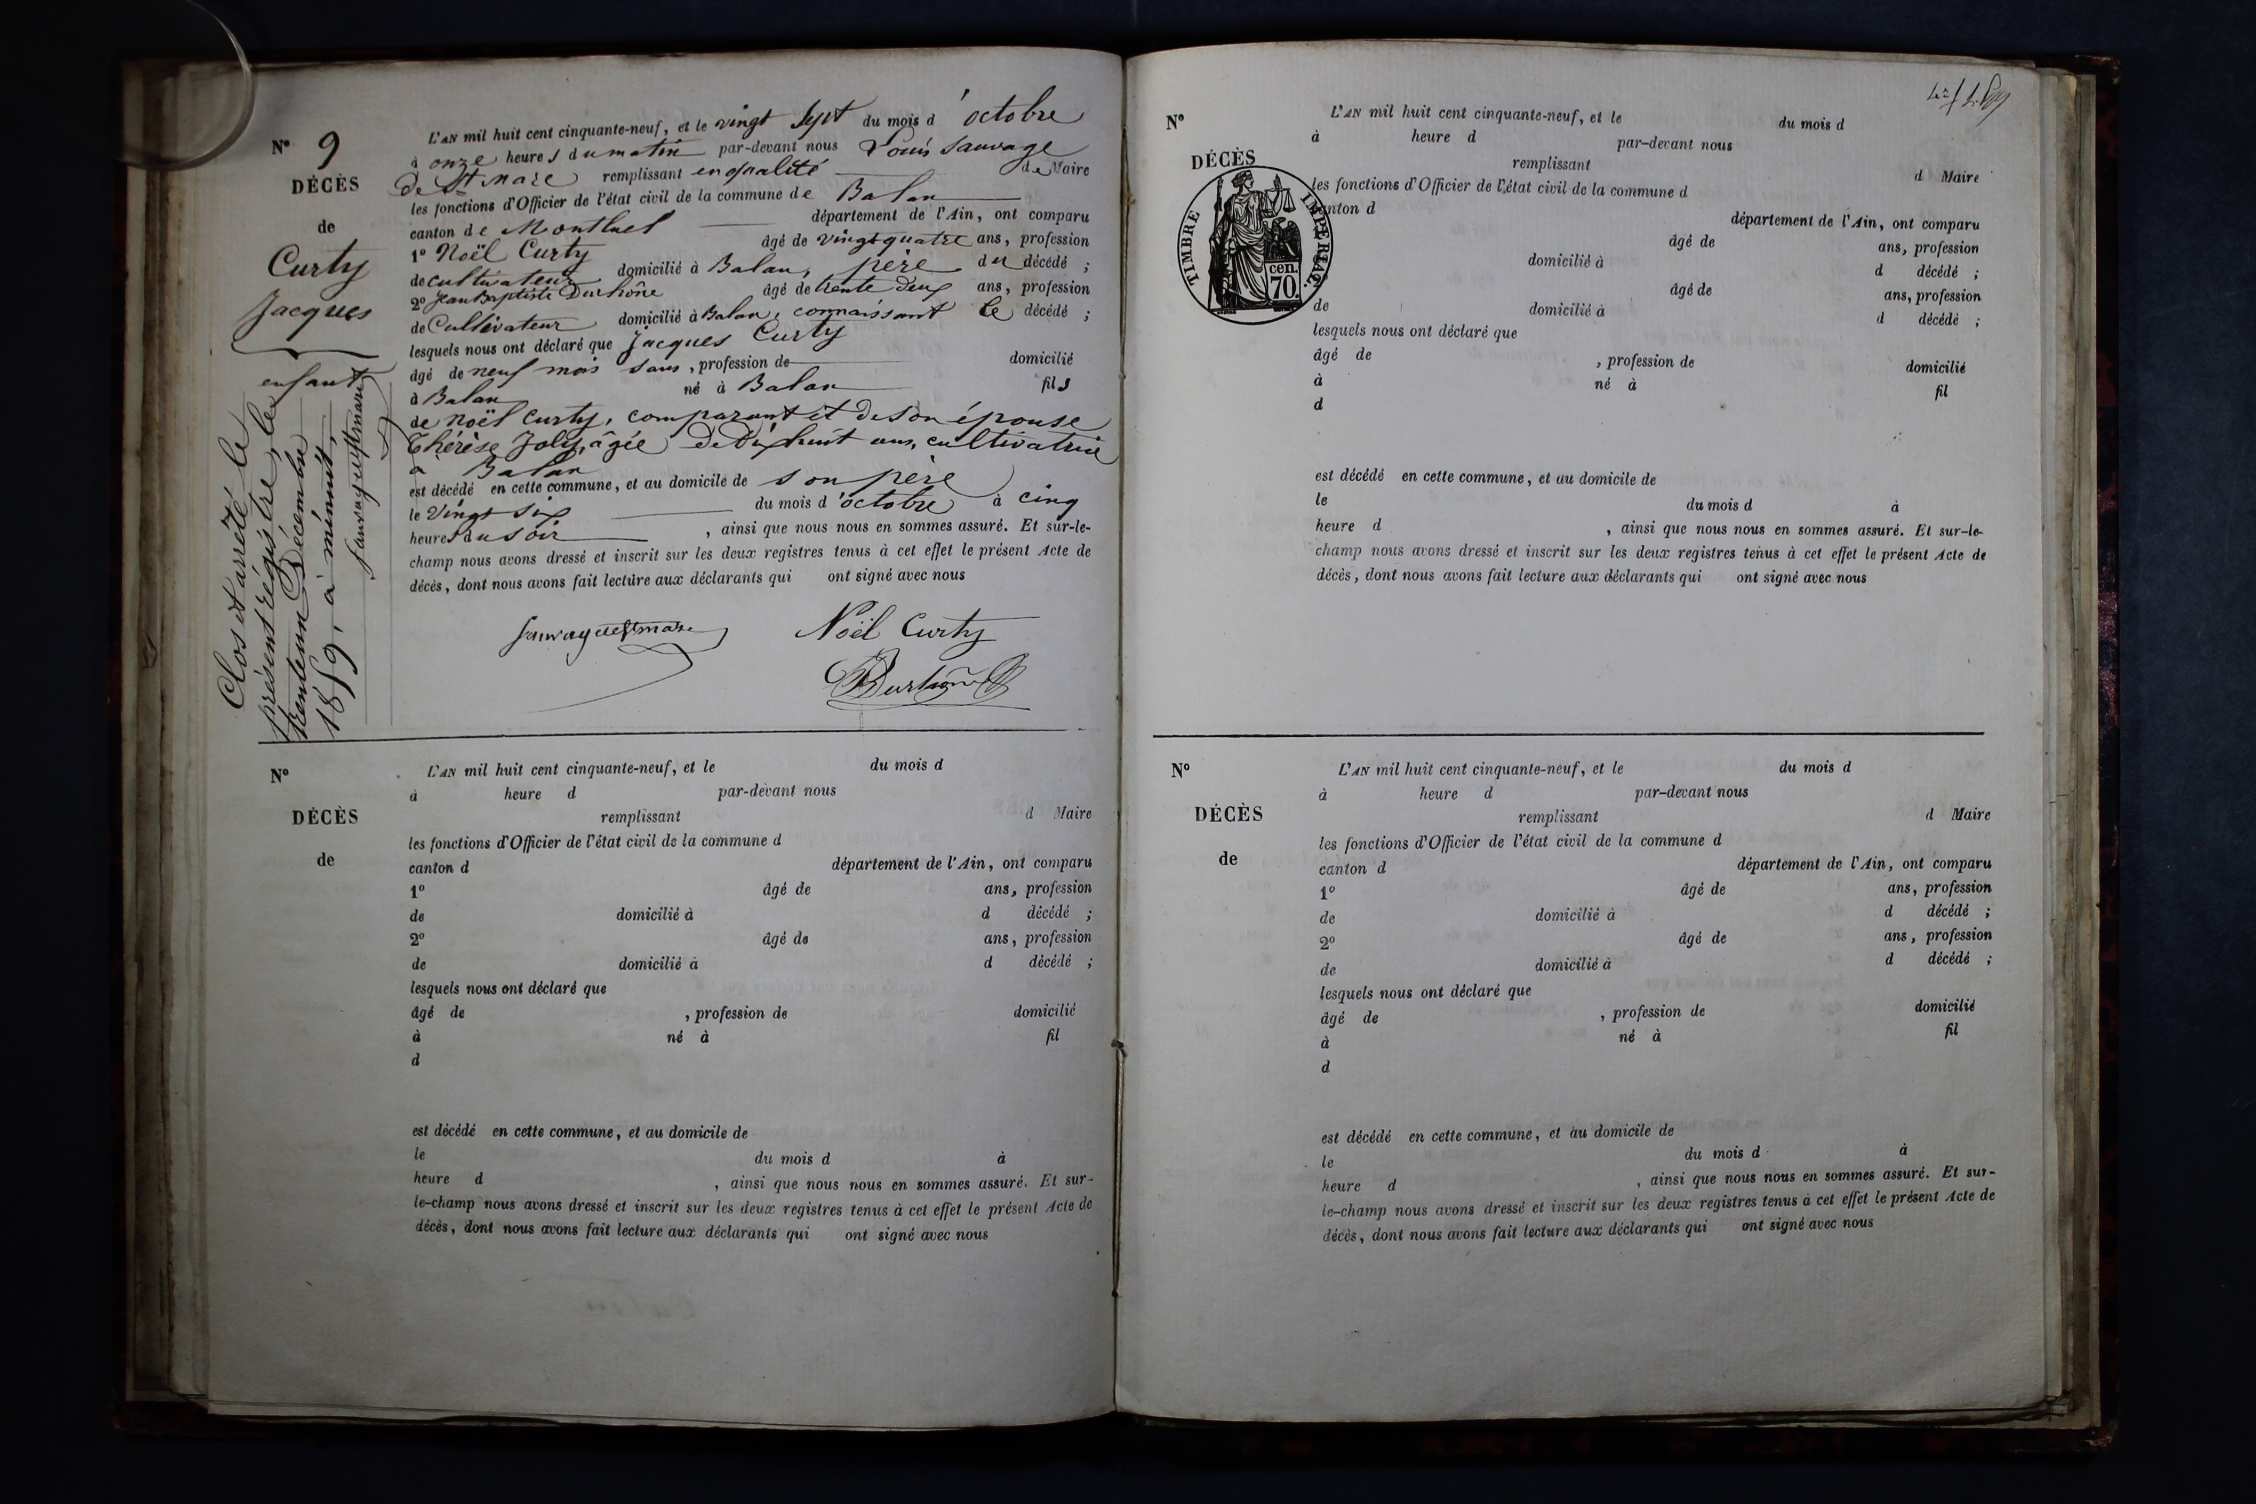 N° 9
DÉCÈS
de
Curty
Jacques
enfant
Clos et arrêté le
présent registre, le
trente un Décembre
1859, à minuit,
Sauvage de St mare
L'AN mil huit cent cinquante-neuf, et le vingt sept du mois d'octobre
à onze heures du matin par-devant nous Louis Sauvage
De St Mare remplissant en qualité de Maire
les fonctions d'Officier de l'état civil de la commune de Balan
canton de Montluel département de l'Ain, ont comparu
1° Noël Curty âgé de vingt quatre ans, profession
de cultivateur domicilié à Balan, père du décédé ;
2° Jean Baptiste Durhône âgé de trente deux ans, profession
de Cultivateur domicilié à Balan, connaissant le décédé ;
lesquels nous ont déclaré que Jacques Curty
âgé de neuf mois sans, profession de domicilié
à Balan né à Balan fils
de Noël Curty, comparant et de son épouse
Thérèse Joly, âgée de dix huit ans, cultivatrice
à Balan
est décédé en cette commune, et au domicile de son père
le Vingt six du mois d'octobre à cinq
heures du soir, ainsi que nous nous en sommes assuré. Et sur-le-
champ nous avons dressé et inscrit sur les deux registres tenus à cet effet le présent Acte de
décès, dont nous avons fait lecture aux déclarants qui ont signé avec nous
Sauvage de St mare Noël Curty
Durhône
N°
DÉCÈS
de
L'AN mil huit cent cinquante-neuf, et le du mois d
à heure d par-devant nous
remplissant d Maire
les fonctions d'Officier de l'état civil de la commune d
canton d département de l'Ain, ont comparu
1° âgé de ans, profession
de domicilié à d décédé ;
2° âgé de ans, profession
de domicilié à d décédé ;
lesquels nous ont déclaré que
âgé de , profession de domicilié
à né à fil
d
est décédé en cette commune, et au domicile de
le du mois d à
heure d , ainsi que nous nous en sommes assuré. Et sur-
le-champ nous avons dressé et inscrit sur les deux registres tenus à cet effet le présent Acte de
décès, dont nous avons fait lecture aux déclarants qui ont signé avec nous
N°
DÉCÈS
TIMBRE IMPERIAL.
cen.
70.
L'AN mil huit cent cinquante-neuf, et le du mois d
à heure d par-devant nous
remplissant d Maire
les fonctions d'Officier de l'état civil de la commune d
canton d département de l'Ain, ont comparu
âgé de ans, profession
domicilié à d décédé ;
âgé de ans, profession
de domicilié à d décédé ;
lesquels nous ont déclaré que
âgé de , profession de domicilié
à né à fil
d
est décédé en cette commune, et au domicile de
le du mois d à
heure d , ainsi que nous nous en sommes assuré. Et sur-le-
champ nous avons dressé et inscrit sur les deux registres tenus à cet effet le présent Acte de
décès, dont nous avons fait lecture aux déclarants qui ont signé avec nous
N°
DÉCÈS
de
L'AN mil huit cent cinquante-neuf, et le du mois d
à heure d par-devant nous
remplissant d Maire
les fonctions d'Officier de l'état civil de la commune d
canton d département de l'Ain, ont comparu
1° âgé de ans, profession
de domicilié à d décédé ;
2° âgé de ans, profession
de domicilié à d décédé ;
lesquels nous ont déclaré que
âgé de , profession de domicilié
à né à fil
d
est décédé en cette commune, et au domicile de
le du mois d à
heure d , ainsi que nous nous en sommes assuré. Et sur-
le-champ nous avons dressé et inscrit sur les deux registres tenus à cet effet le présent Acte de
décès, dont nous avons fait lecture aux déclarants qui ont signé avec nous